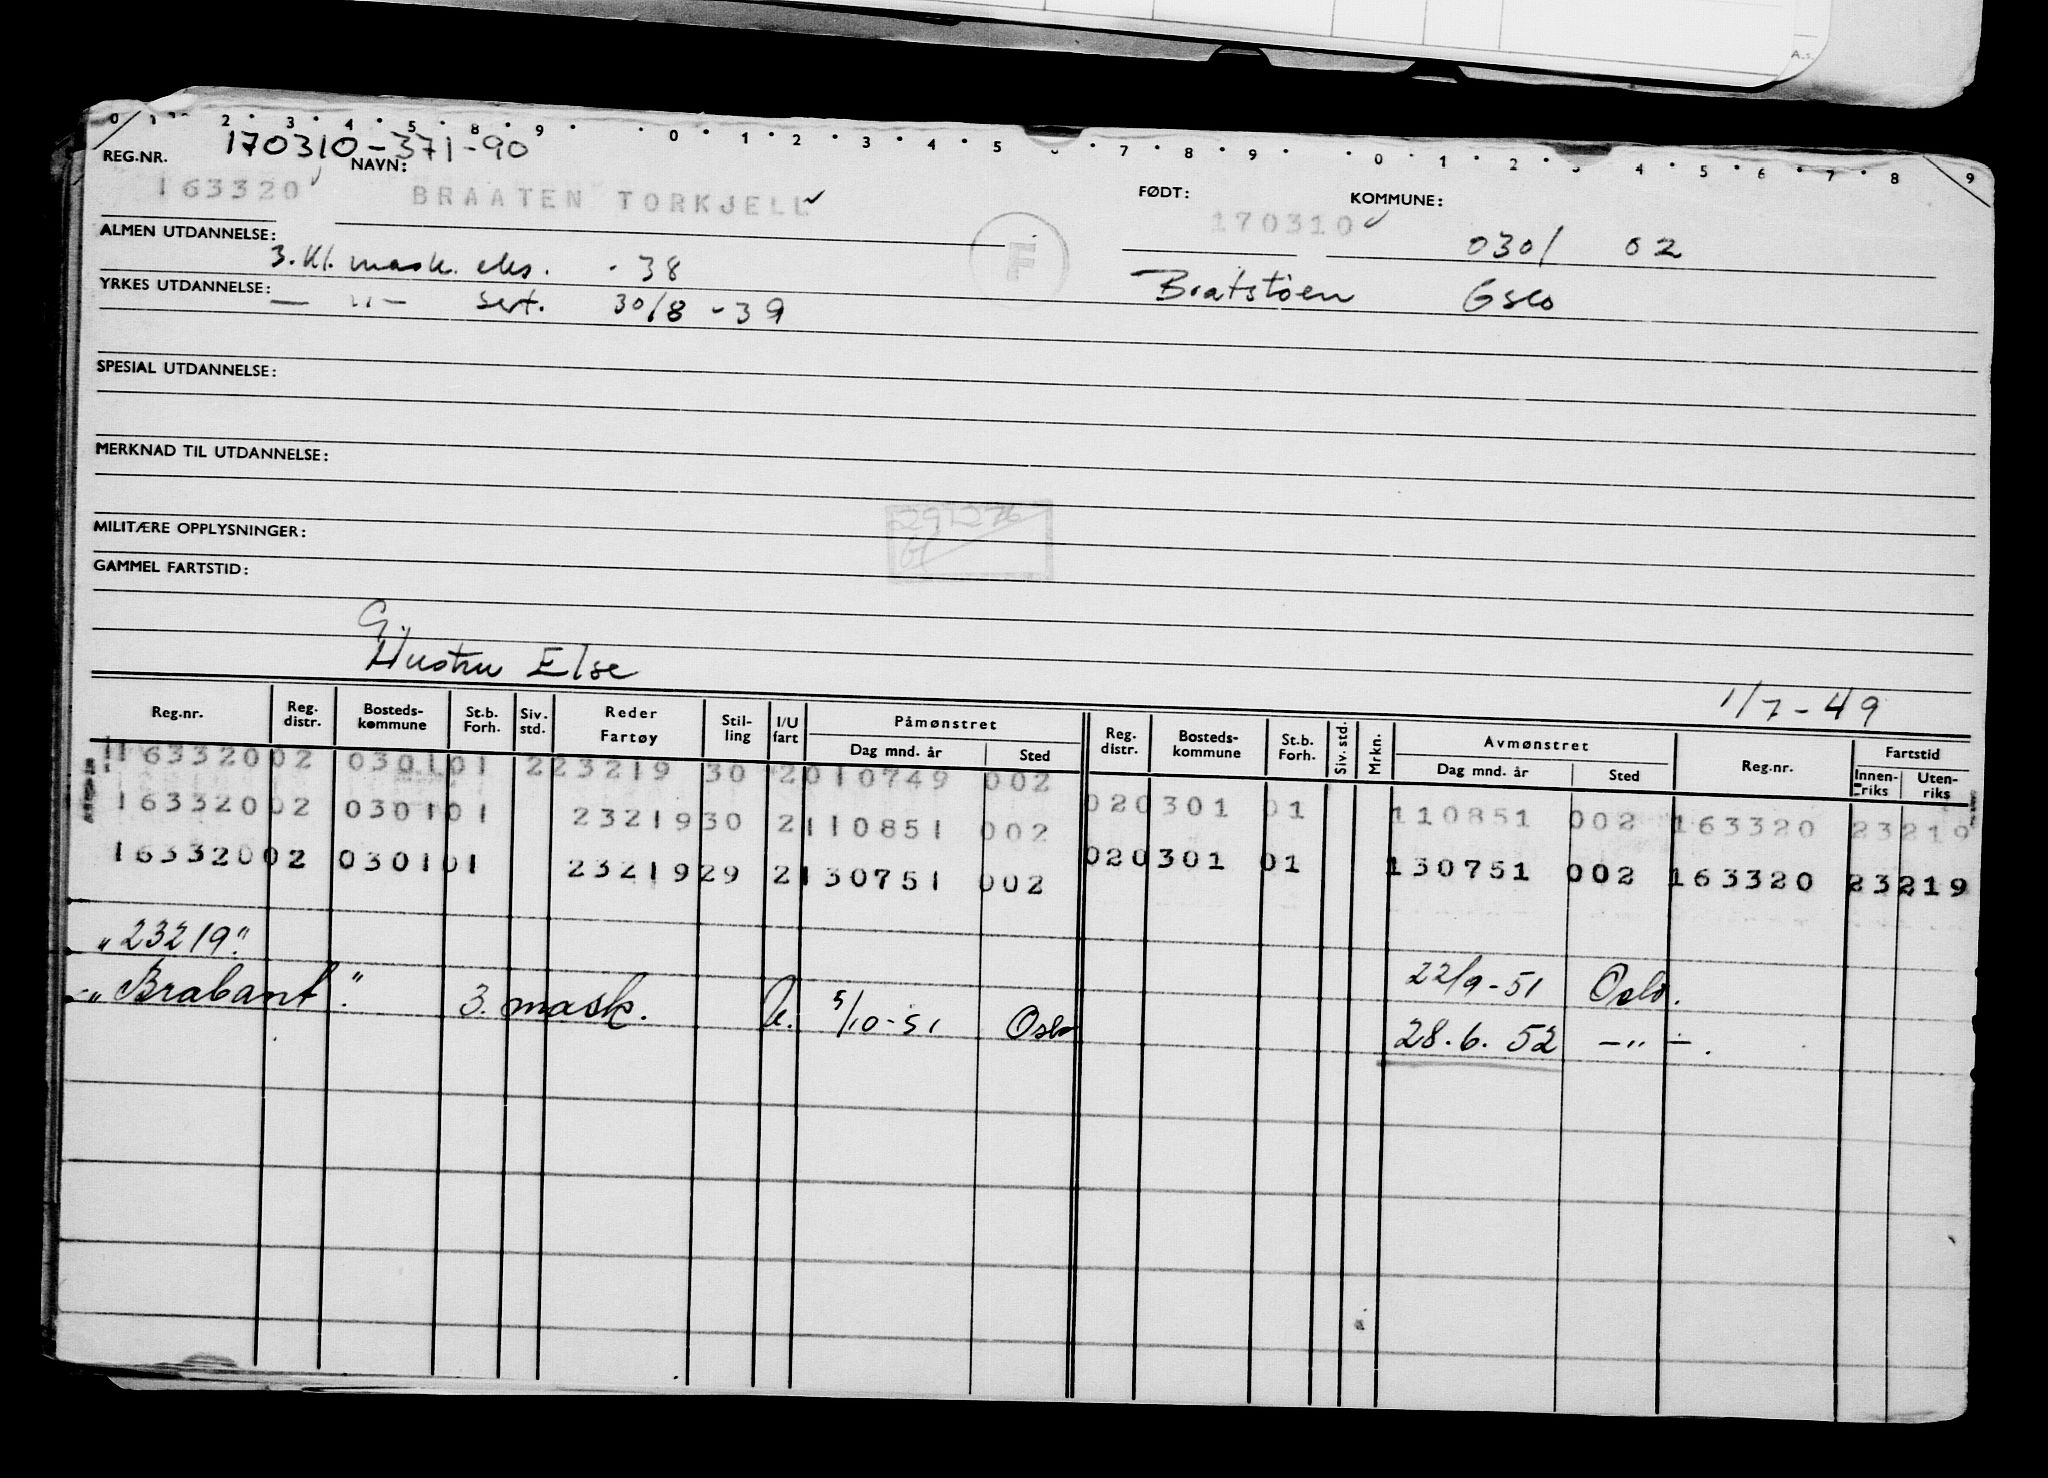 A.s.
0 1 2 • 3 • 4 • 5 • 8 • 9 • • 0 • 1 • 2 • 3 • 4 • 5 • 7 • 8 • 9 • • 0 • 1 • 2 • 4 • 5 • 6 • 7 • 8 9
170310-371-90
REG.NR. NAVN: FØDT: KOMMUNE:
163320 BRAATEN TORKJELL 170310 0301 02
ALMEN UTDANNELSE: 3. kl. mask. eks. - 38 F Bratstöen Oslo
YRKES UTDANNELSE: — " — sert. 30/8 - 39
SPESIAL UTDANNELSE:
MERKNAD TIL UTDANNELSE:
MILITÆRE OPPLYSNINGER:
GAMMEL FARTSTID:
G.
Hustru Else
1/7 - 49
Reg.nr. Reg. distr. Bosteds-kommune St.b. Forh. Siv. std. Reder Fartøy Stil-ling I/U fart Påmønstret Dag mnd. år Sted Reg. distr. Bosteds-kommune St.b. Forh. Siv. std. Mrkn. Avmønstret Dag mnd. år Sted Reg.nr. Fartstid Innen-riks Uten-riks
163320 02 0301 01 2 23219 30 2 010749 002
163320 02 0301 01 23219 30 2 110851 002 02 0301 01 110851 002 163320 23219
163320 02 0301 01 23219 29 2 130751 002 02 0301 01 130751 002 163320 23219
"23219" 22/9-51 Oslo.
"Brabant" 3. mask. U. 5/10-51 Oslo 28.6.52 —"—.